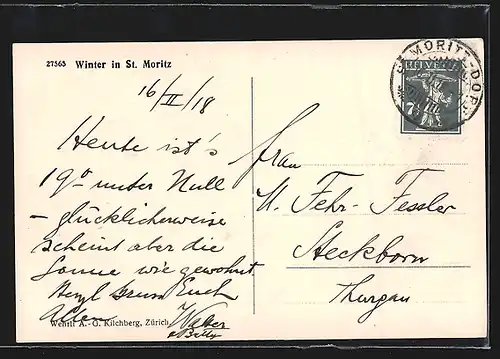 27565 Winter in St. Moritz
16/II/18
Heute ist's
19° unter Null
- glücklicherweise
scheint aber die
Sonne wie gewohnt
Herzl Gruss Euch
Allen Walter
Wehrli A.-G. Kilchberg, Zürich
ST. MORITZ-DORF
HELVETIA
7½
Frau
U. Fehr-Fessler
Steckborn
Thurgau